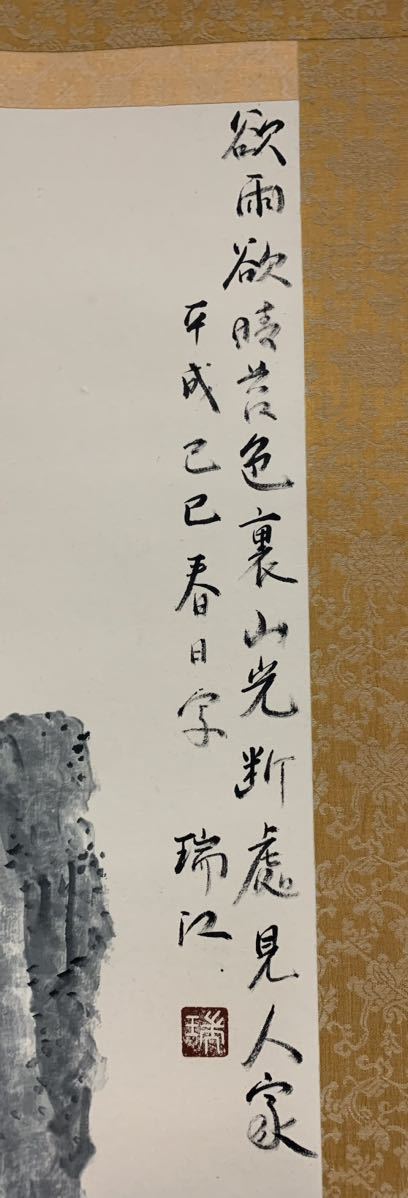 欲雨欲晴苔色裏山光断處見人家
平成己巳春日字
瑞江
瑞